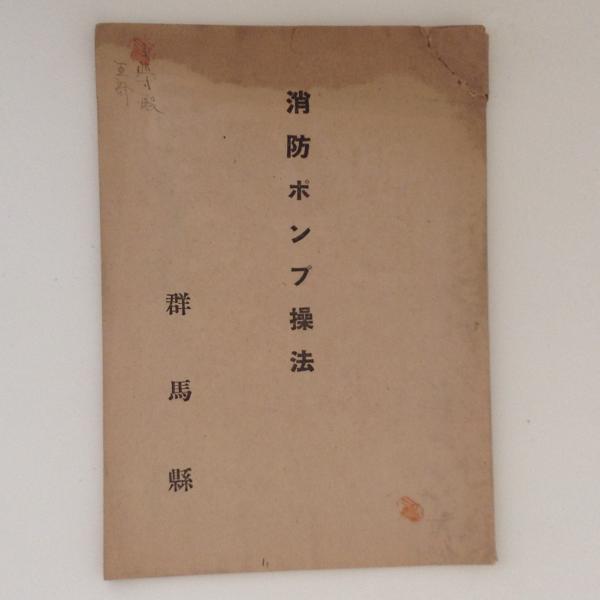 消防ポンプ操法
群馬縣